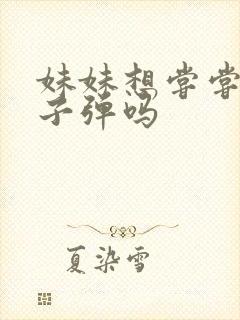 妹妹想尝尝
子弹吗
夏染雪